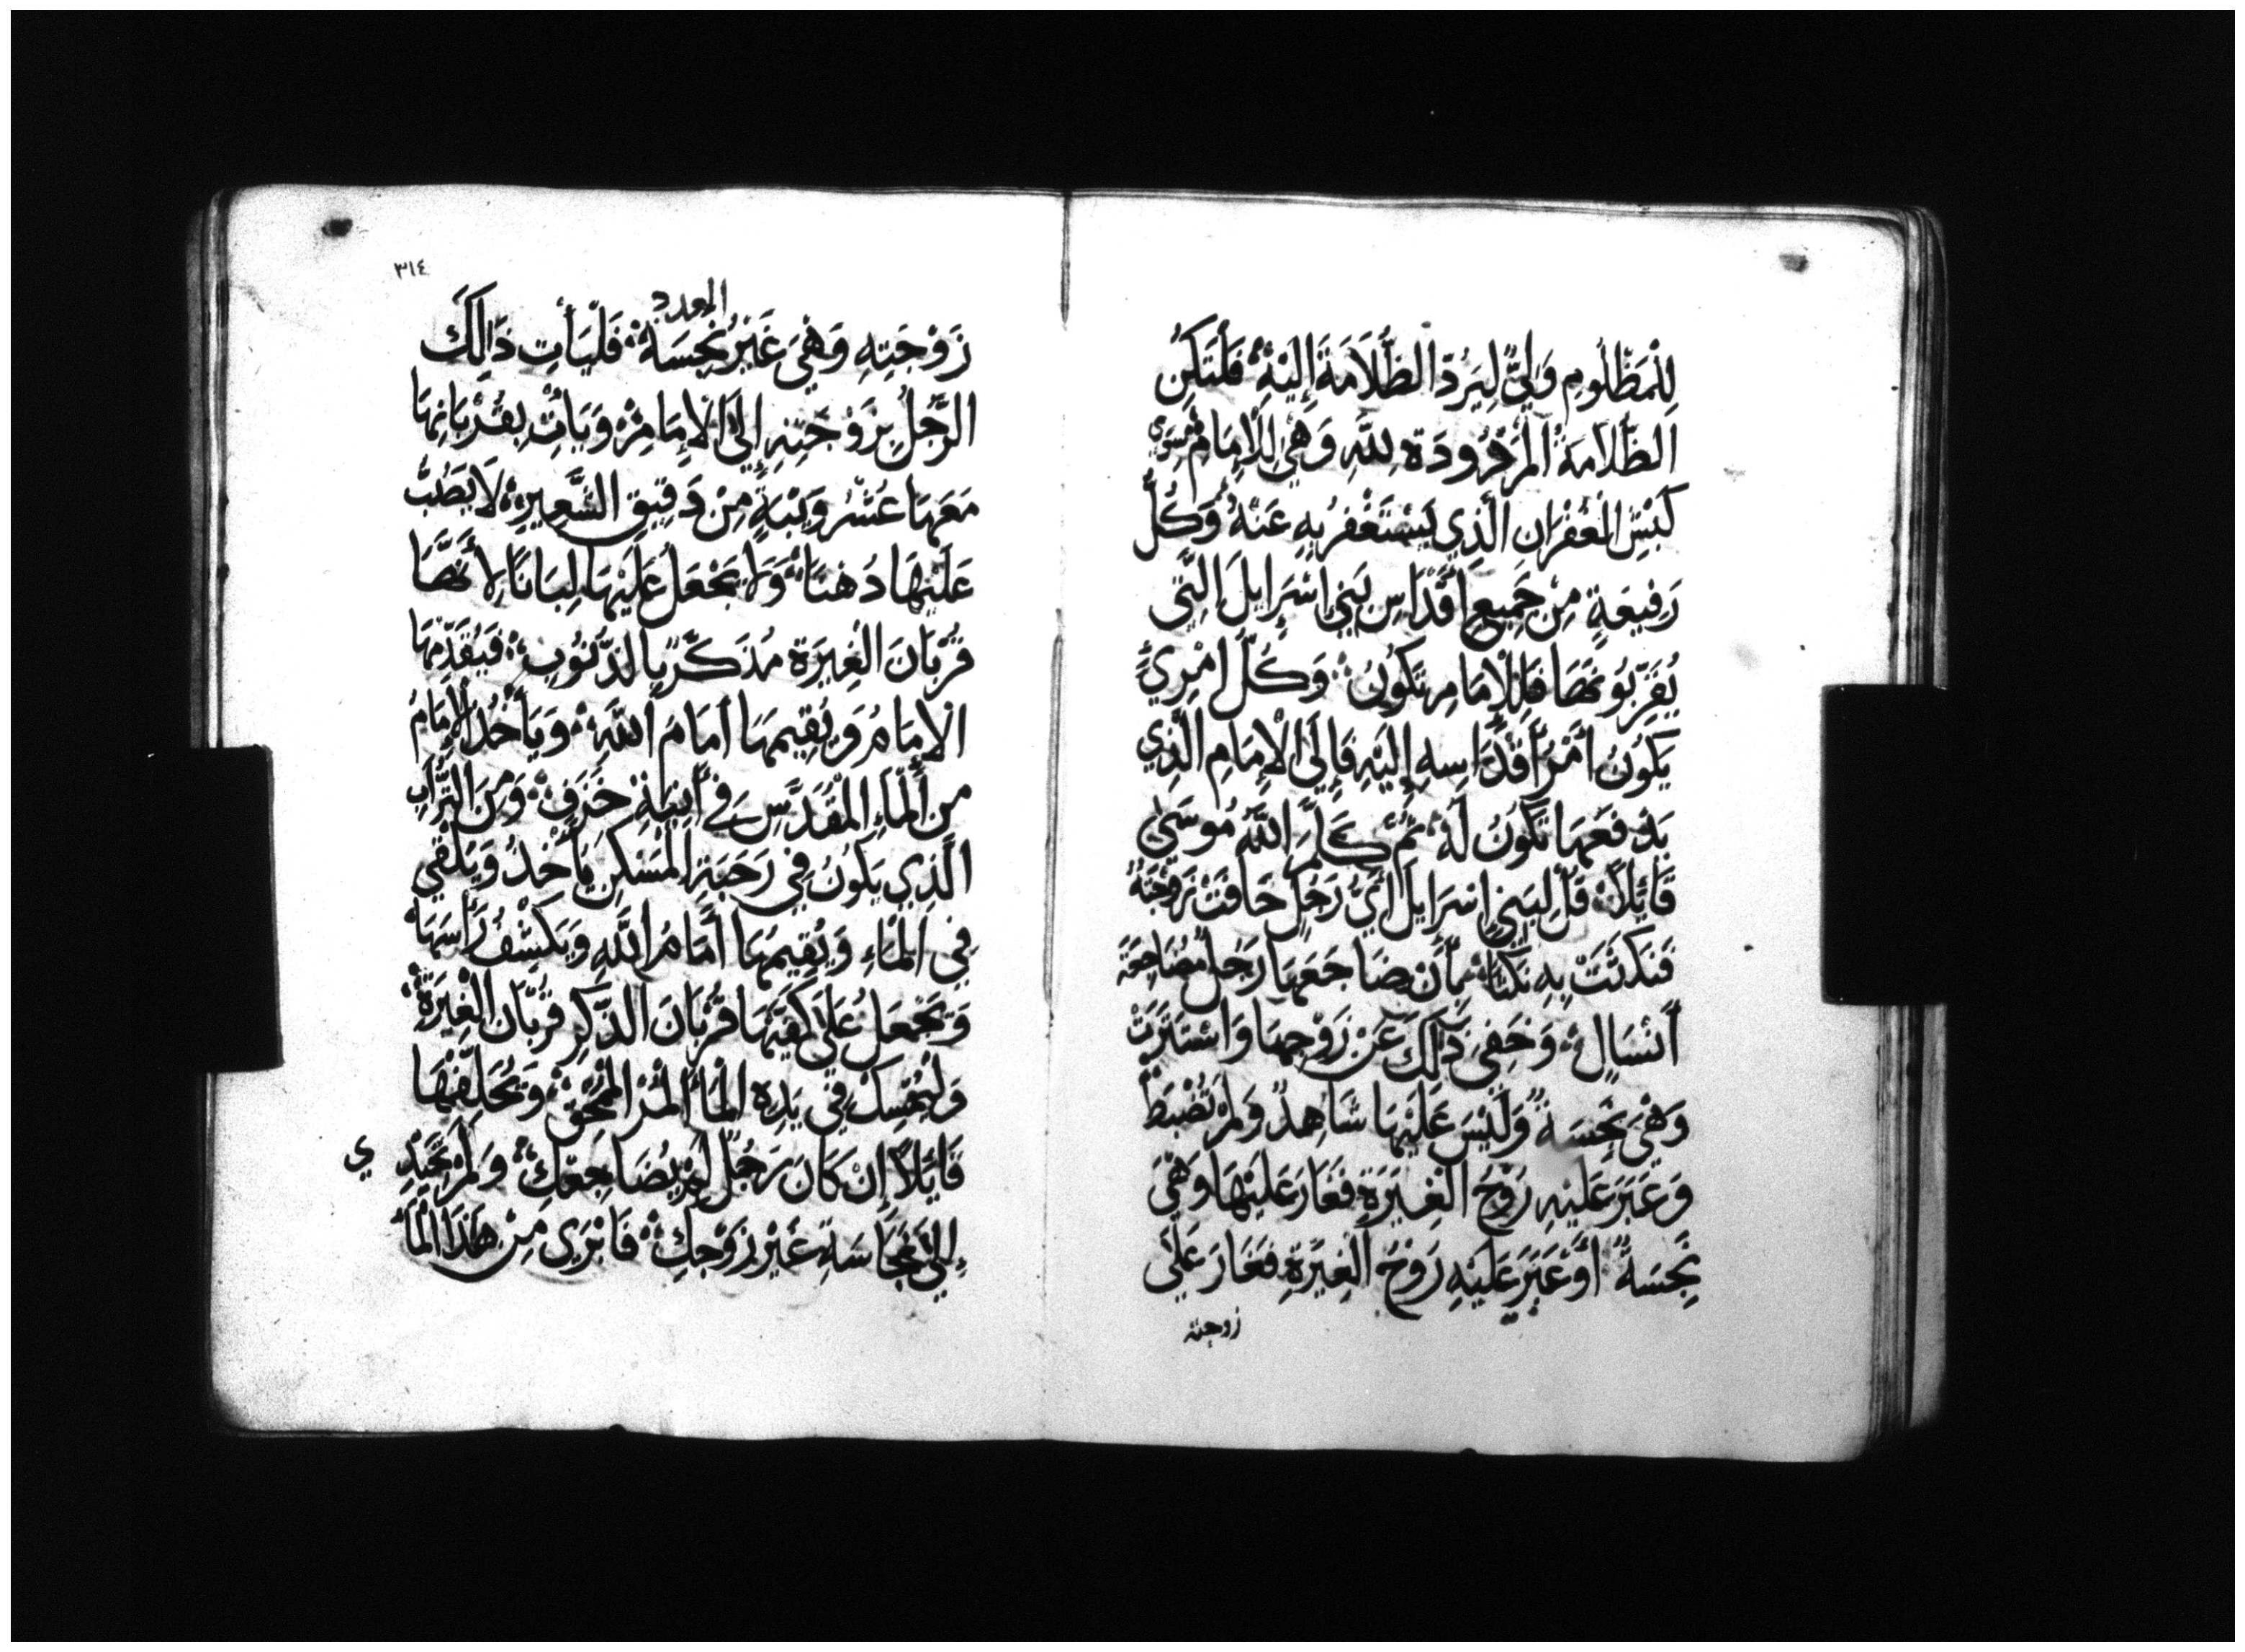 لِلْمَظْلُومِ وَلِيٌّ لِيَرُدَّ الظُّلَامَةَ إِلَيْهِ فَلْتَكُنِ
الظُّلَامَةُ الْمَرْدُودَةُ لِلَّهِ وَهْيَ لِلْإِمَامِ سِوَى
كَبْشِ الْغُفْرَانِ الَّذِي يَسْتَغْفِرُ بِهِ عَنْهُ وَكُلُّ
رَفِيعَةٍ مِنْ جَمِيعِ أَقْدَاسِ بَنِي إِسْرَايِلَ الَّتِي
يُقَرِّبُونَهَا فَلِلْإِمَامِ تَكُونُ وَكُلُّ امْرِيءٍ
يَكُونُ أَمْرُ أَقْدَاسِهِ إِلَيْهِ فَإِلَى الْإِمَامِ الَّذِي
يَدْفَعُهَا تَكُونُ لَهُ ثُمَّ كَلَّمَ اللَّهُ مُوسَى
قَائِلًا قُلْ لِبَنِي إِسْرَايِلَ أَيُّ رَجُلٍ خَافَتْ زَوْجَتُهُ
فَنَكَثَتْ بِهِ نَكْثًا بِأَنْ ضَاجَعَهَا رَجُلٌ مُضَاجَعَةَ
أَنْسَالٍ وَخَفِيَ ذَالِكَ عَنْ زَوْجِهَا وَاسْتَتَرَتْ
وَهْيَ نَجِسَةٌ وَلَيْسَ عَلَيْهَا شَاهِدٌ وَلَمْ تُضْبَطْ
وَعَبَرَ عَلَيْهِ رُوْحُ الْغِيَرَةِ فَغَارَ عَلَيْهَا وَهْيَ
نَجِسَةٌ أَوْ عَبَرَ عَلَيْهِ رَوْحُ الْغِيَرَةِ فَغَارَ عَلَى
زوجته
٣١٤
العدد
زَوْجَتِهِ وَهْيَ غَيْرُ نَجِسَةٍ فَلْيَأْتِ ذَالِكَ
الرَّجُلُ بِزَوْجَتِهِ إِلَى الْإِمَامِ وَيَأْتِ بِقُرْبَانِهَا
مَعَهَا عُشْرُ وَيْبَةٍ مِنْ دَقِيقِ الشَّعِيرِ لَا يَصُبُّ
عَلَيْهَا دُهْنًا وَلَا يَجْعَلْ عَلَيْهَا لِبَانًا لِأَنَّهَا
قُرْبَانَ الْغِيَرَةِ مُذَكِّرٌ بِالذُّنُوبِ فَيُقَدِّمُهَا
الْإِمَامُ وَيُقِيمُهَا أَمَامَ اللَّهِ وَيَأْخُذُ الْإِمَامُ
مِنَ الْمَاءِ الْمُقَدَّسِ فِي أَنِيَةِ خَزَفٍ وَمِنَ التُّرَابِ
الَّذِي يَكُونُ فِي رَحَبَةِ الْمَسْكِنِ يَأْخُذُ وَيَلْقِي
فِي الْمَاءِ وَيُقِيمُهَا أَمَامَ اللَّهِ وَيَكْشِفُ رَأْسَهَا
وَيَجْعَلُ عَلَى كَفَّيْهَا قُرْبَانَ الذَّكِرِ قُرْبَانَ الْغِيَرَةِ
وَلْيُمْسِكْ فِي يَدِهِ الْمَاءَ الْمُرَّ الْمُحَقِّقَ وَيُحَلِّفْهَا
قَائِلًا إِنْ كَانَ رَجُلٌ لَمْ يُضَاجِعْكِ وَلَمْ تَحِيدِي
إِلَى نَجَاسَةِ غَيْرِ زَوْجِكِ فَابْرَي مِنْ هَذَا الْمَاءِ